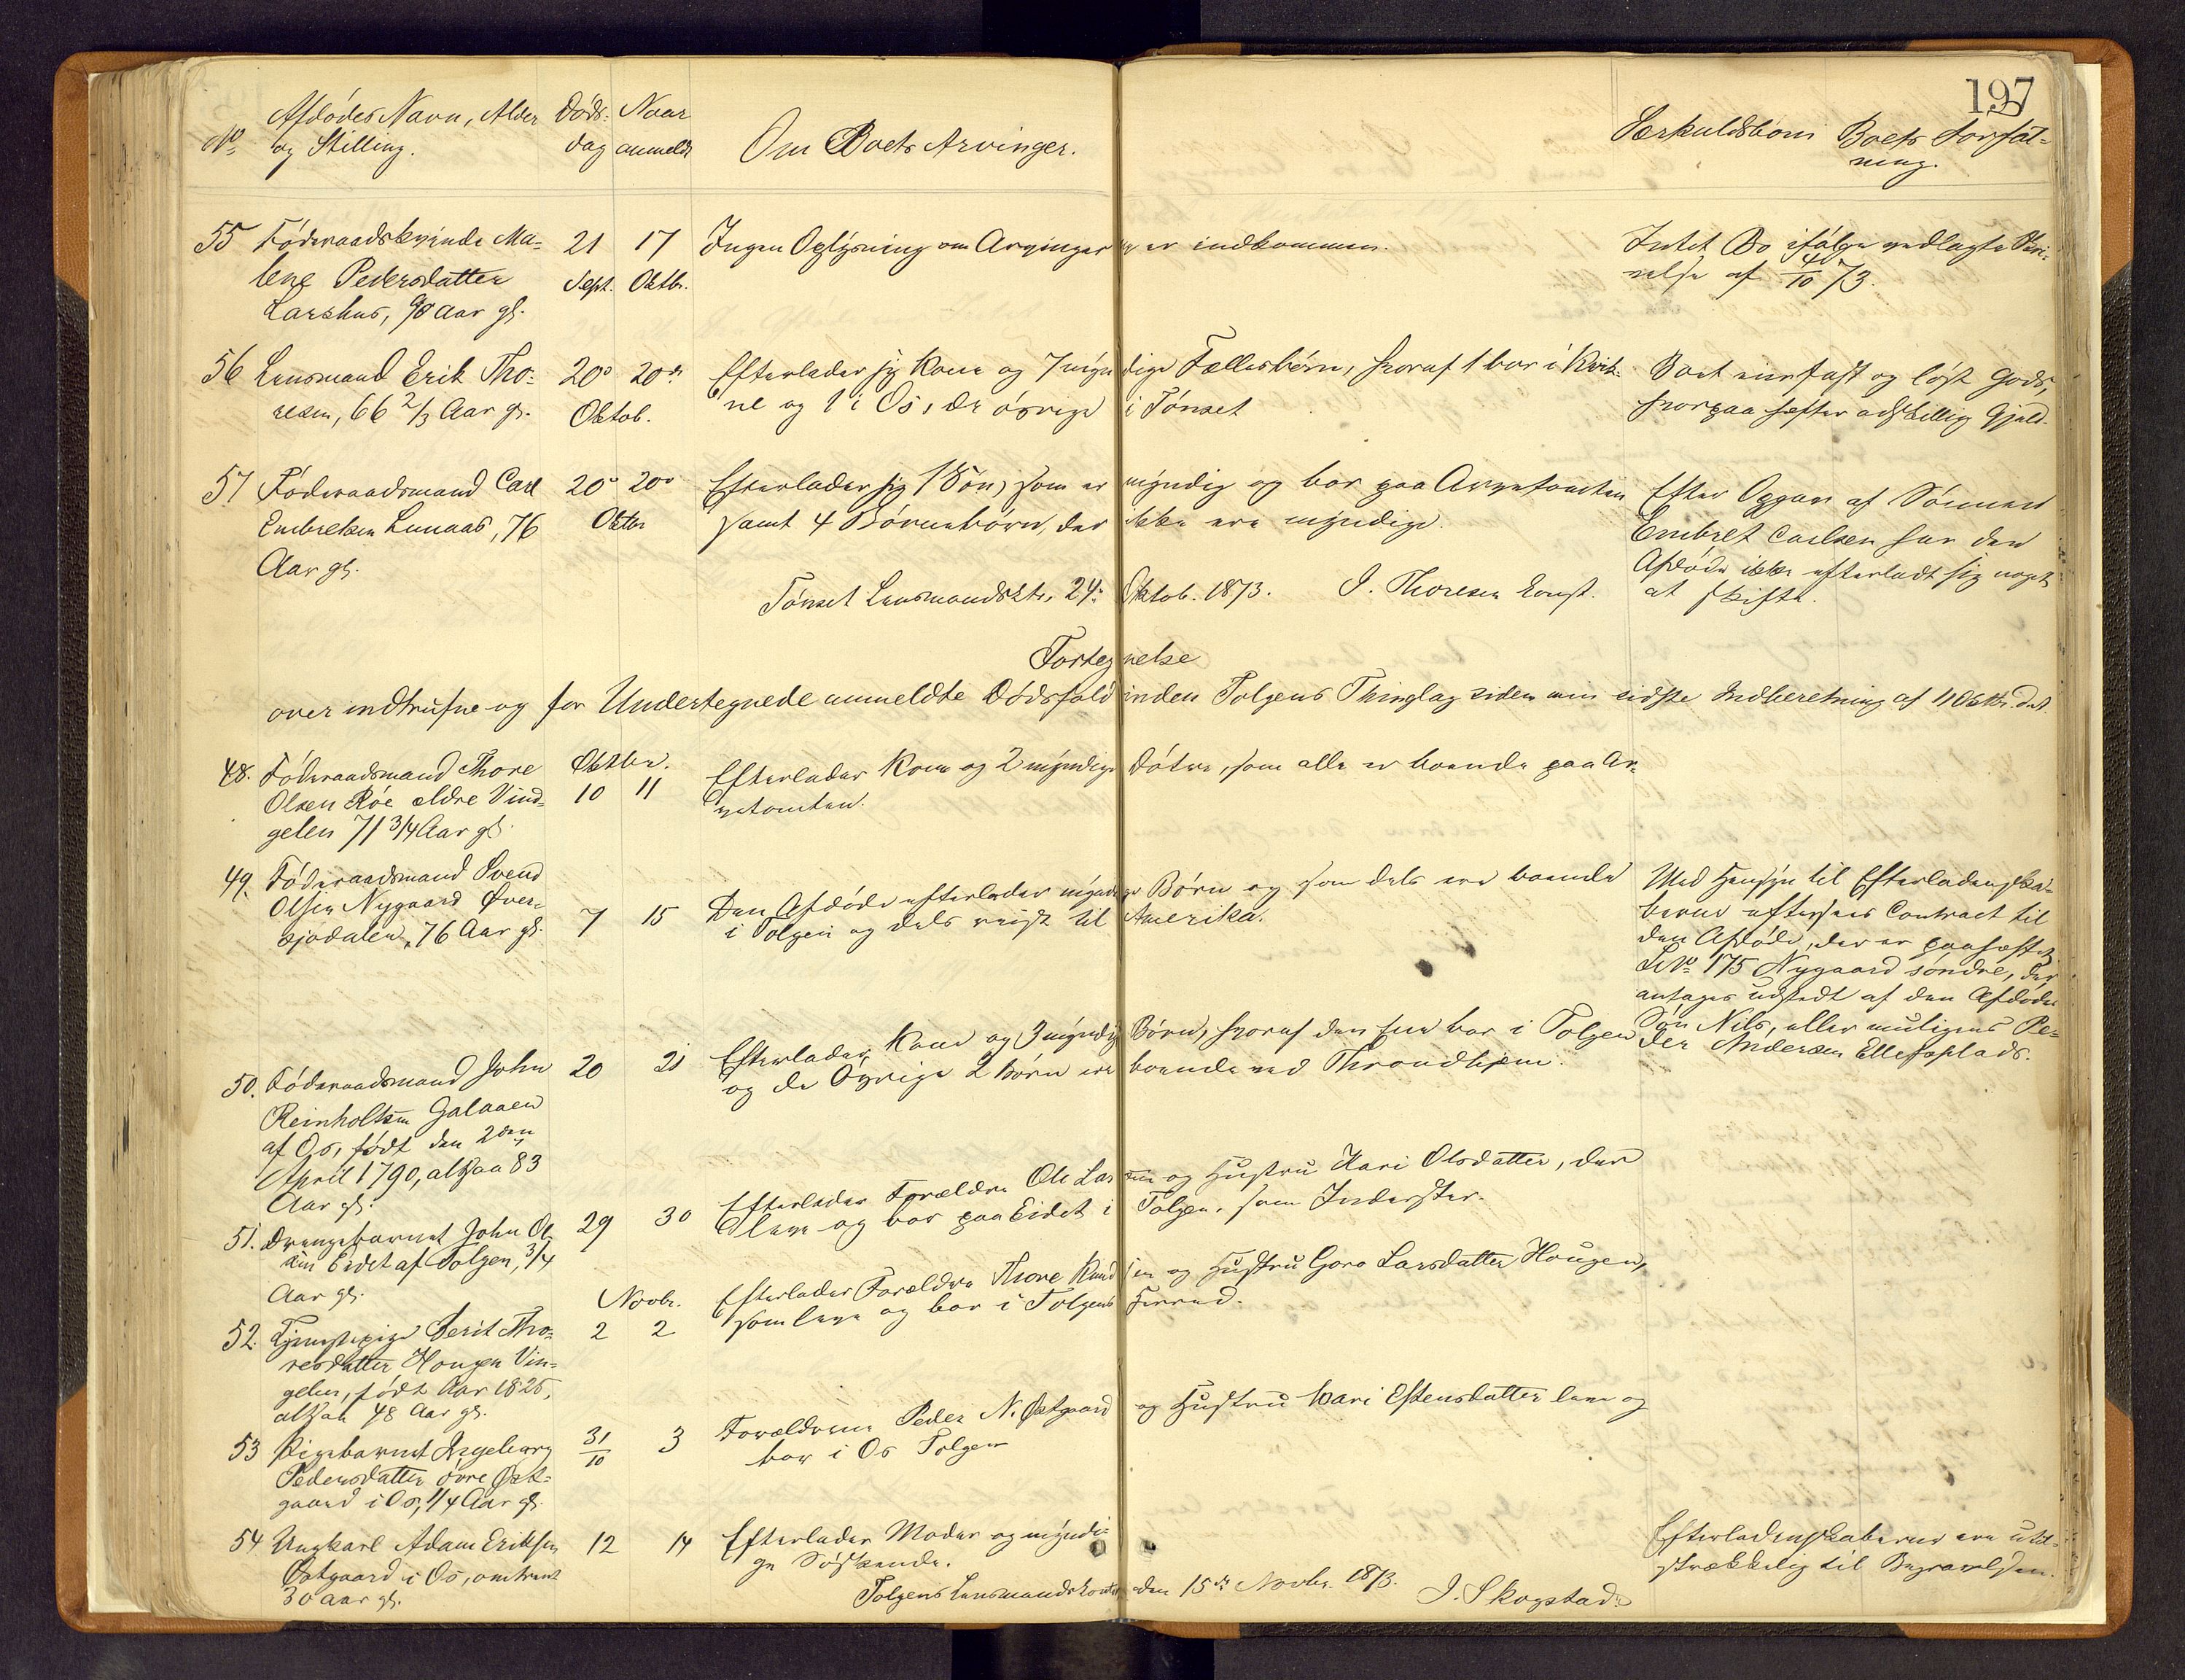 197
No Afdødes Navn, Alder og Stilling.
Døds- dag
Naar anmeldt
Om Boets Arvinger.
Særkuldsbørn
Boets Forfat-
ning.
55 Føderaadskvinde Ma-
lene Pedersdatter
Larshus, 90 Aar gl.
21 Sept.
17 Oktbr.
Ingen Oplysning om Arvinger er indkommen.
Intet Bo ifølge vedlagte
af 4/10 73.
56 Lensmand Erik Tho-
resen, 66 2/3 Aar gl.
20de 20de
Oktob.
Efterlader sig Kone og 7 myndige Fællesbørn, hvoraf 1 bor i Kvik-
ne og 1 i Os, de øvrige i Tønset
Boet eier fast og løst Gods,
hvorpaa hefter adskillig Gjeld.
57 Føderaadsmand Carl
Embretsen Lunaas, 76
Aar gl.
20de 20de
Oktbr
Efterlader sig 1 Søn, som er myndig og bor paa Arvetomten
samt 4 Børnebørn, der ikke ere myndige.
Efter Opgave af Sønnen
Embret Carlsen har den
Afdøde ikke efterladt sig noget
at skifte.
Tønset Lensmandsktr. 24. Oktob. 1873. J. Thoresen const.
Fortegnelse
over indtrufne og for Undertegnede anmeldte Dødsfald inden Tolgens Thinglag siden min sidste Indberetning af 11 Oktbr. d.A.
48. Føderaadsmand Thore
Olsen Røe ældre Vind-
gelen 71 3/4 Aar gl.
Oktbr.
10 11
Efterlader Kone og 2 myndige Døtre, som alle er boende paa Ar-
vetomten.
49. Føderaadsmand Svend
Olsen Nygaard Øver-
sjødalen, 76 Aar gl.
7 15
Den Afdøde efterlader myndige Børn og som dels ere boende
i Tolgen og dels reist til Amerika.
Med Hensyn til Efterladenska-
berne eftersees Contract til
den Afdøde, der er paahæftet
LNo 175 Nygaard søndre, der
antages udstedt af den Afdødes
Søn Nils, eller muligens Pe-
der Andersen Ellefsplads.
50. Føderaadsmand John
Reinholtsen Galaaen
af Os, født den 2den
April 1790, altsaa 83
Aar gl.
20 21
Efterlader Kone og 3 myndige Børn, hvoraf den ene bor i Tolgen
og de Øvrige 2 Børn ere boende ved Throndhjem.
51. Drengebarnet John Ol-
sen Eidet af Tolgen, 3/4
Aar gl.
29 30
Efterlader Forældre Ole Larsen og Hustru Kari Olsdatter, der
leve og bor paa Eidet i Tolgen, som Inderster.
52. Tjenestepige Berit Tho-
resdatter Hougen Vin-
gelen, født Aar 1825,
altsaa 48 Aar gl.
Novbr.
2 2
Efterlader Forældre Thore Knudsen og Hustru Goro Larsdatter Hougen,
som leve og bor i Tolgens Herred.
53 Pigebarnet Ingeborg
Pedersdatter øvre Øst-
gaard i Os, 1/4 Aar gl.
31/10 3
Forældrene Peder N. Østgaard og Hustru Kari Estensdatter leve og
bor i Os Tolgen
54 Ungkarl Adam Eriksen
Østgaard i Os, omtrent
30 Aar gl.
12 14
Efterlader Moder og myndi-
ge Søskende.
Efterladenskaberne ere util-
strækkelig til Begravelsen.
Tolgens Lensmandskontor den 15de Novbr. 1873. J. Skogstad.